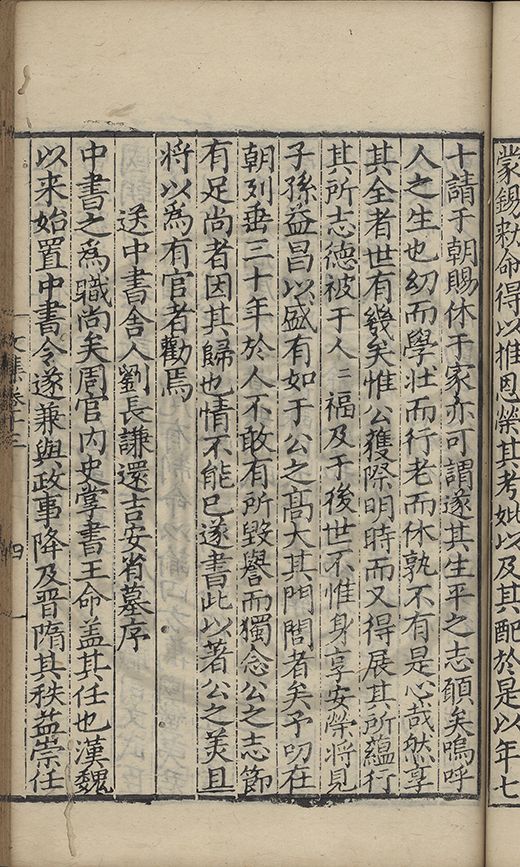 蒙錫勑命得以推恩榮其考妣以及其配於是以年七
十請于朝賜休于家亦可謂遂其生平之志願矣嗚呼
人之生也幼而學壯而行老而休孰不有是心哉然享
其全者世有幾矣惟公獲際明時而又得展其所蘊行
其所志德被于人〻福及于後世不惟身享安榮將見
子孫益昌以盛有如于公之髙大其門閭者矣予叨在
朝列垂三十年於人不敢有所毀譽而獨念公之志節
有足尚者因其歸也情不能已遂書此以著公之美且
將以爲有官者勸焉
送中書舍人劉長謙還吉安省墓序
中書之爲職尚矣周官内史掌書王命盖其任也漢魏
以来始置中書令遂兼與政事降及晋隋其秩益崇任
文集卷十三
四